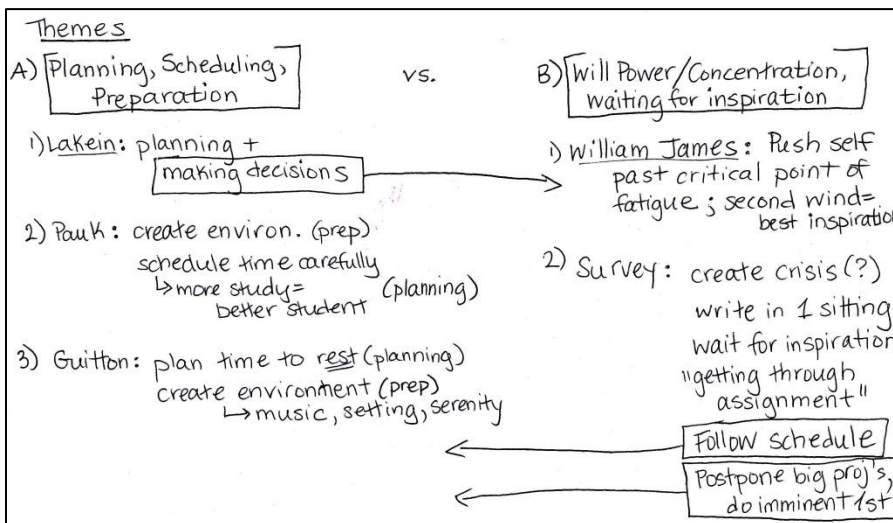 Themes
A) Planning, Scheduling,
Preparation
vs.
B) Will Power/Concentration,
waiting for inspiration
1) Lakein: planning +
making decisions
2) Pauk: create environ. (prep)
schedule time carefully
↳ more study=
better student (planning)
3) Guitton: plan time to rest (planning)
create environment (prep)
↳ music, setting, serenity
1) William James: Push self
past critical point of
fatigue; second wind=
best inspiration
2) Survey: create crisis(?)
write in 1 sitting
wait for inspiration
"getting through
assignment"
Follow schedule
Postpone big proj's,
do imminent 1st